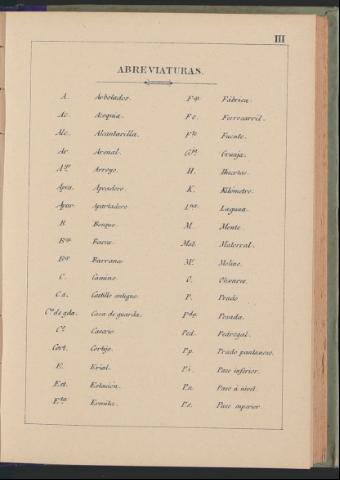 III
ABREVIATURAS.
A. Arbolados.
Ac. Acequia.
Alc. Alcantarilla.
Ar. Arenal.
A.yo Arroyo.
Apartadero
B. Bosque.
Barranco.
C. Camino.
C.a. Castillo antiguo.
C.a de gda. Casa de guarda.
C.o Caserio.
Cort. Cortijo.
E. Erial.
Est. Estación.
E.ta Ermita.
F.ca Fábrica.
F.c. Ferrocarril.
F.te Fuente.
G.ja Granja.
H. Huertas.
K. Kilómetro.
L.na Laguna.
M. Monte
Mat. Matorral.
M.o Molino.
O. Olivares.
P. Prado
P.da Posada.
Ped. Pedregal.
P.p. Prado pantanoso.
P.i. Paso inferior.
P.n. Paso á nivel.
P.s. Paso superior.